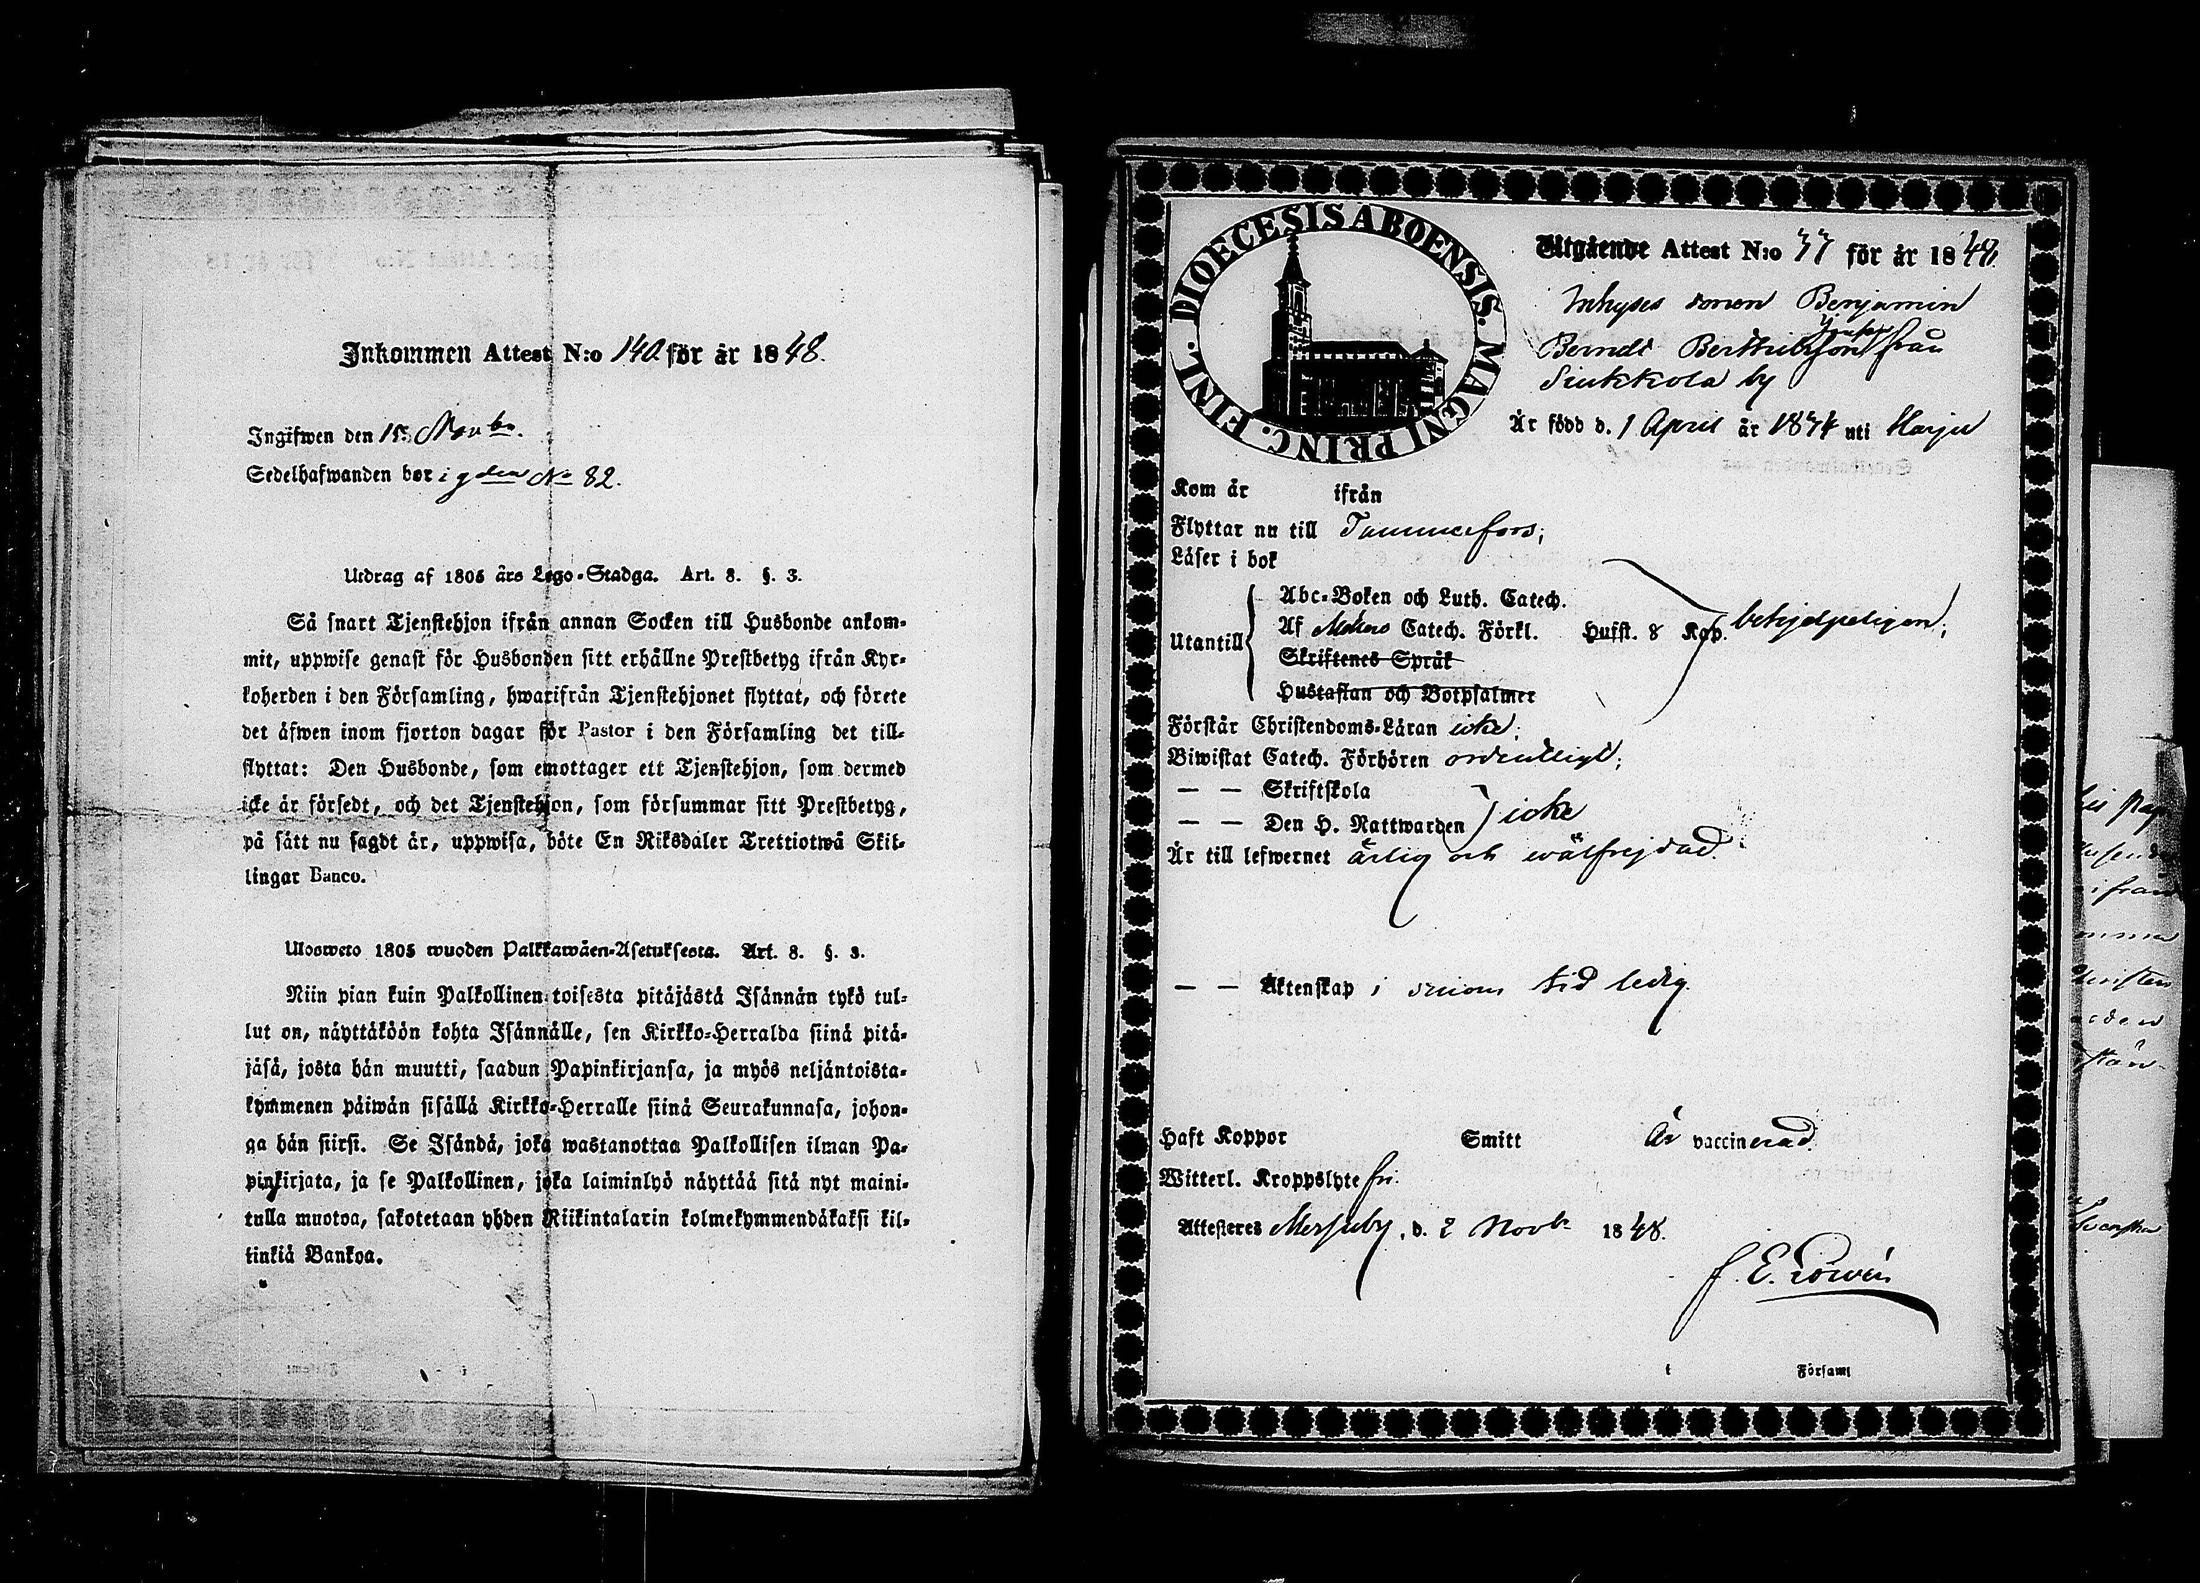 Inkommen Attest N:o 140 för år 1848.
Ingifwen den 15 Novbr.
Sedelhafwanden bor i 9 den No 82.
Utdrag af 1805 års Lego-Stadga. Art. 8. §. 3.
Så snart Tjenstehjon ifrån annan Socken till Husbonde ankom-
mit, uppwise genast för Husbonden sitt erhållne Prestbetyg ifrån Kyr-
koherden i den Församling, hwarifrån Tjenstehjonet flyttat, och förete
det äfwen inom fjorton dagar för Pastor i den Församling det till-
flyttat: Den Husbonde, som emottager ett Tjenstehjon, som dermed
icke är försedt, och det Tjenstehjon, som försummar sitt Prestbetyg,
på sätt nu sagdt är, uppwisa, böte En Riksdaler Trettiotwå Skil-
lingar Banco.
Ulosweto 1805 wuoden Palkkawäen-Asetuksesta. Art. 8. §. 3.
Niin pian kuin Palkollinen toisesta pitäjästä Isännän tykö tul-
lut on, näyttäköön kohta Isännälle, sen Kirkko-Herralda siinä pitä-
jäsä, josta hän muutti, saadun Papinkirjansa, ja myös neljäntoista-
kymmenen päiwän sisällä Kirkko-Herralle siinä Seurakunnasa, johon-
ga hän siirsi. Se Isändä, joka wastanottaa Palkollisen ilman Pa-
pinkirjata, ja se Palkollinen, joka laiminlyö näyttää sitä nyt maini-
tulla muotoa, sakotetaan yhden Riikintalarin kolmekymmendäkaksi kil-
tinkiä Bankoa.
DIOECESIS ABOENSIS. MAGNI PRINC. FINL.
Utgående Attest N:o 77 för år 1848.
Inhyses sonen Benjamin
Berndt från
Sinkkola by
Är född d. 1 April år 1834 uti Harju
Kom år ifrån
Flyttar nu till Tammerfors;
Läser i bok
Abc-Boken och Luth. Catech.
Utantill Af Catech. Förkl. Husst. 8 Kap. behjelpeligen;
Skriftenes Språk
Hustaflan och Botpsalmer
Förstår Christendoms-Läran icke;
Biwistat Catech. Förhören ordentligt;
— — Skriftskola
— — Den H. Nattwarden icke
Är till lefwernet ärlig och wälfrejdad.
— — Äktenskap i tid ledig.
Haft Koppor Smitt Är vaccinerad.
Witterl. Kroppslyte fri.
Attesteres Messuby, d. 2 Novbr 1848.
i Församl